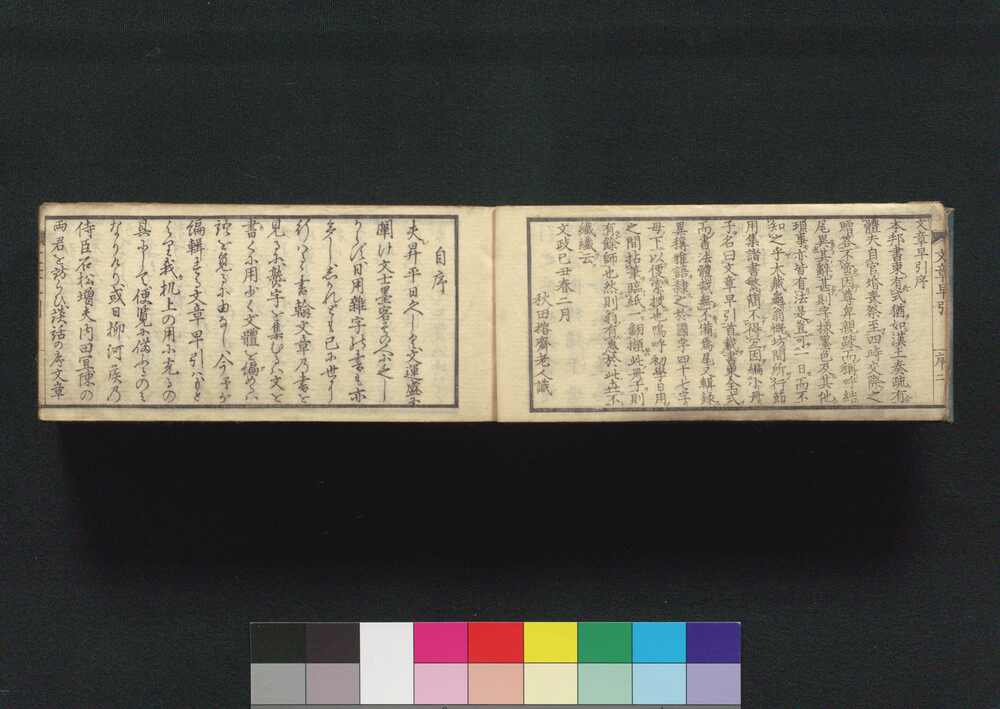 文章早引序
本邦書柬有式猶如漢土奏疏有
體夫自官婚喪祭至四時交際之
贈荅不啻因尊卑親疎而稱呼結
尾異其辭甚則字樣墨色及其他
瑣事亦皆有法是豈可一日而不
知之乎大歳龜翁慨坊間所行節
用集諸書繁簡不得宜因編小冊
子名曰文章早引首載書柬全式
而書法體裁無不備焉尾又輯錄
異稱雅語隷之於國字四十七字
母下以便索捜也嗚呼初學日用
之間拈筆臨紙一翻擷此冊子則
有餘師也然則豈有憙於此世不
纖纖云
文政己丑春二月
秋田撝齋老人識
文章早引
序二
自序
夫昇平日久しく文運盛に
闢け文士墨客その人に乏し
からず日用雜字の書も亦
多ししかれども已に世に
行るゝ書翰文章乃書を
見るに數字を集るハ文を
書くに用少く文體を備るハ
語を覓るに由なし今予が
編輯する文章早引ハもと
よりわが机上の用に充るの
具にして便覧に備ふるのミ
なりしが或日柳河の医乃
侍臣石松増夫内田宜陳の
両君を訪らひ談話の序文章